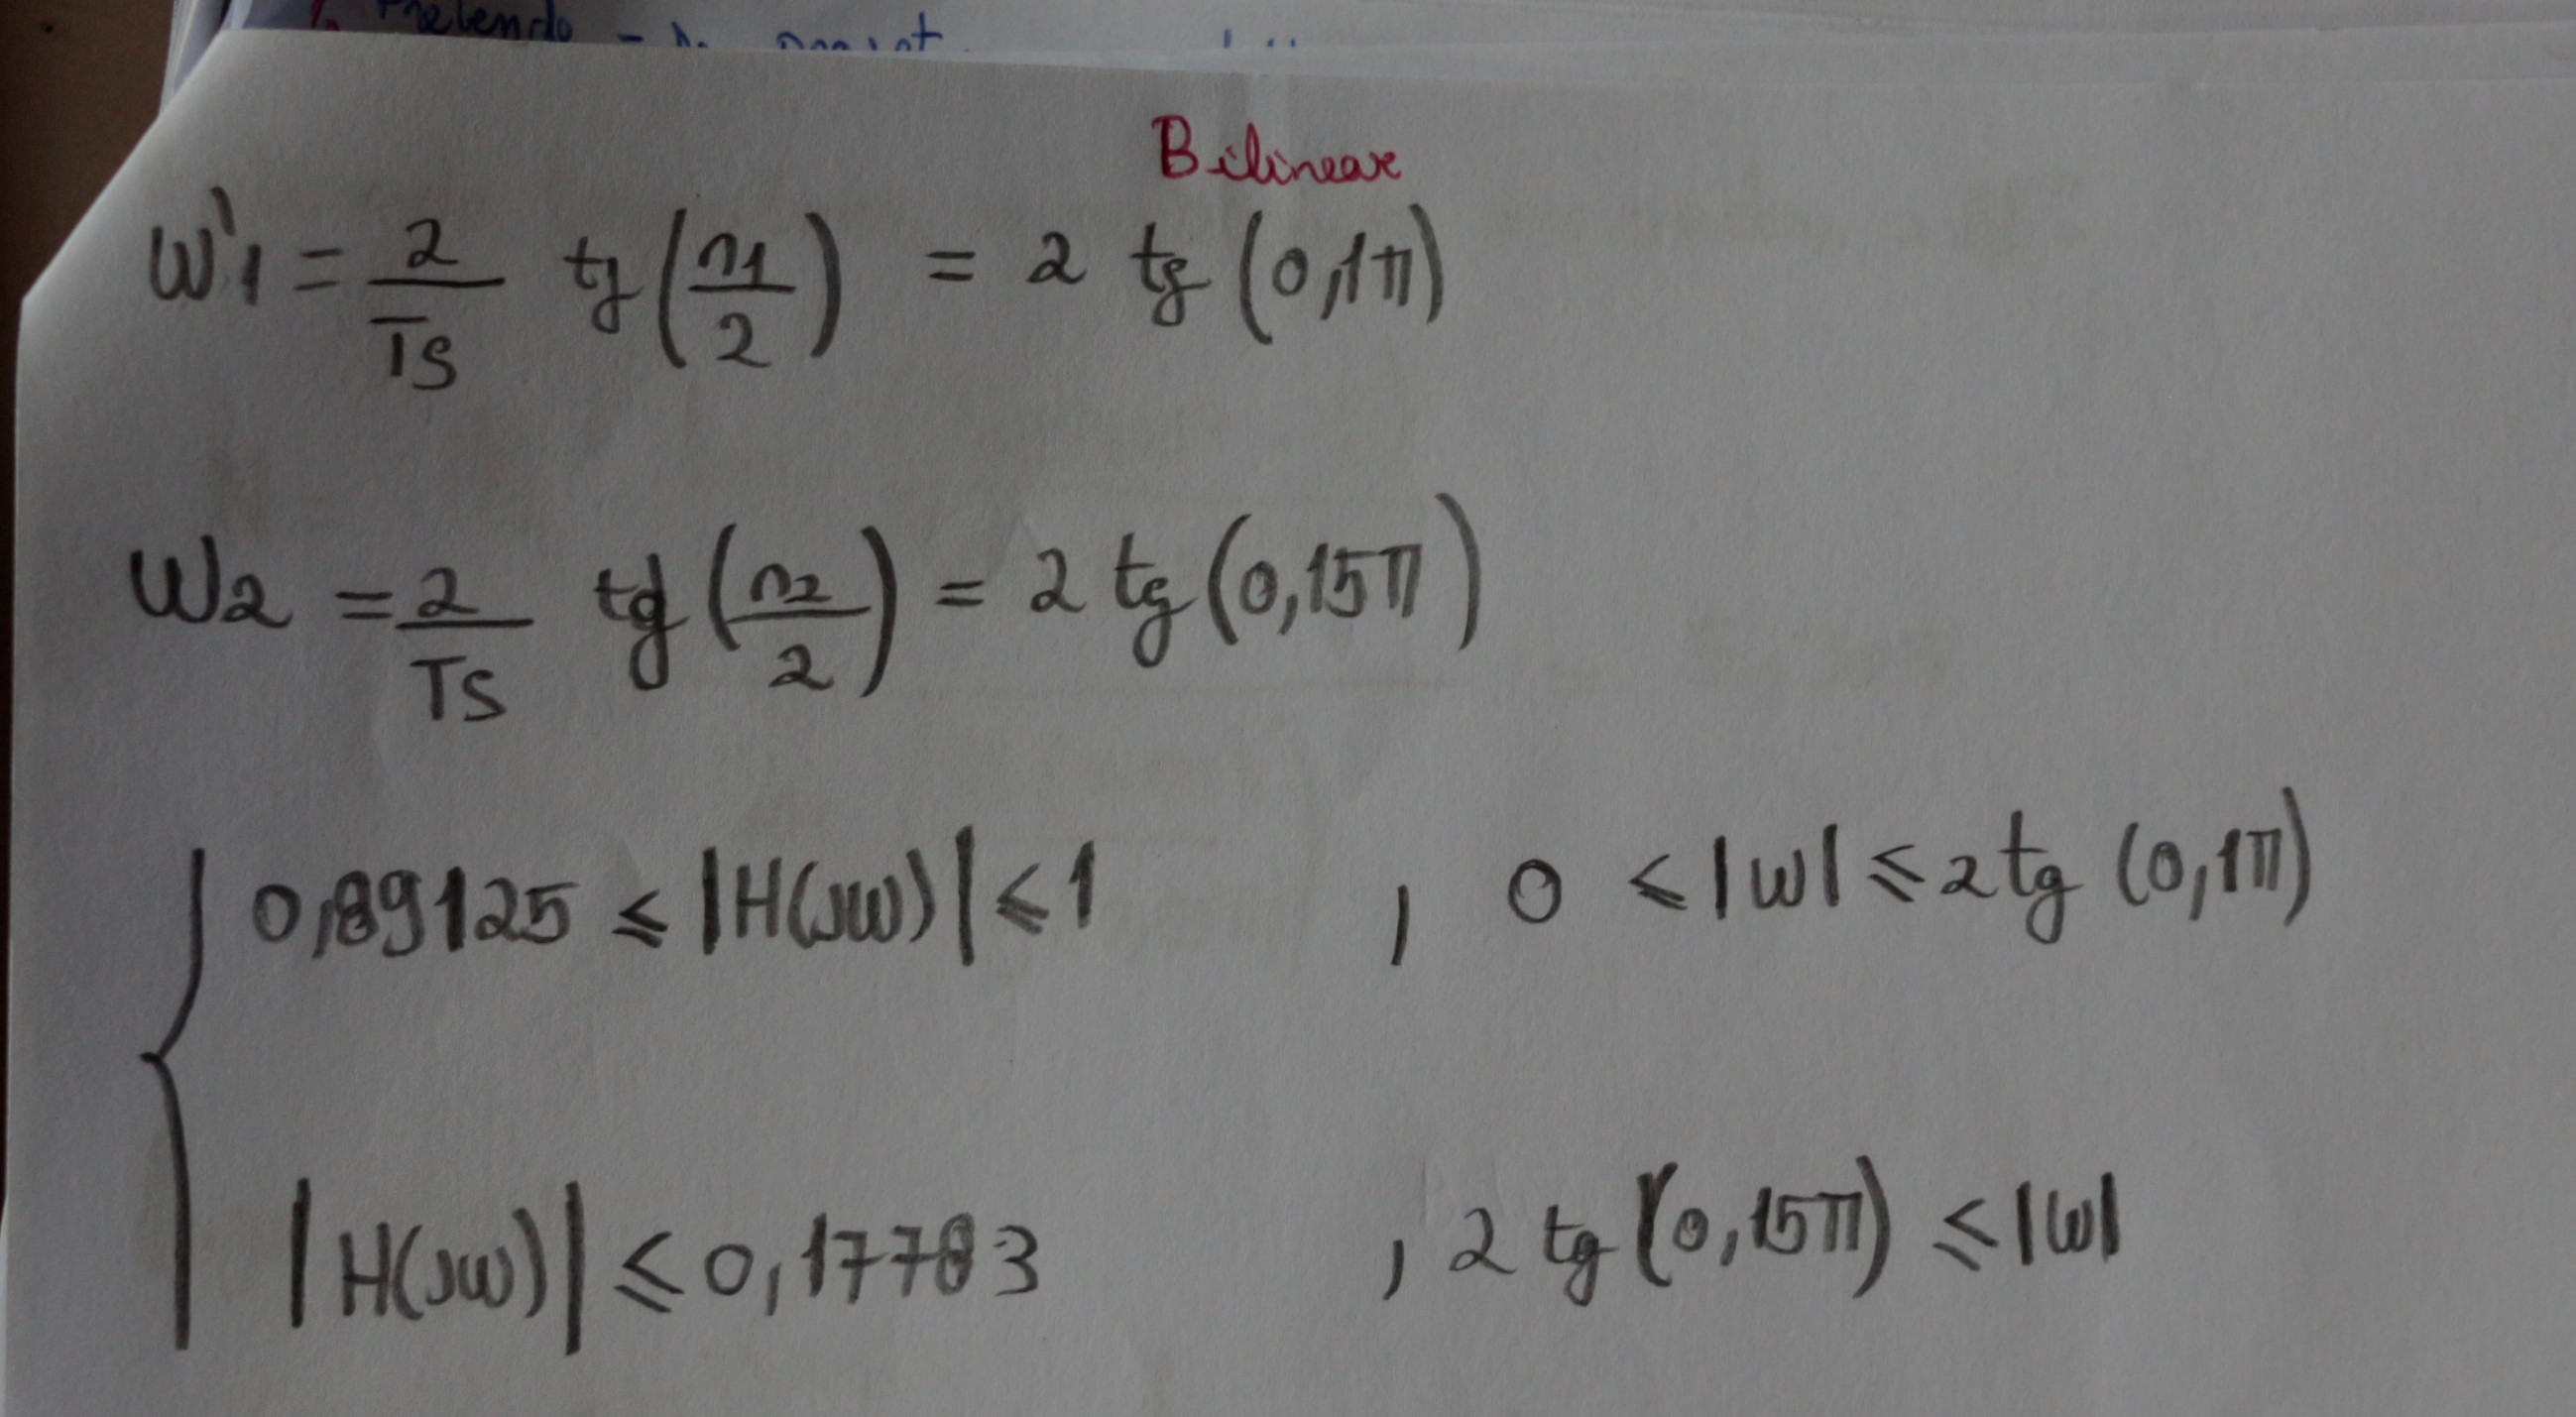 Pretendo
Bilinear
W'1 = 2/Ts tg(n1/2) = 2 tg (0,1π)
W2 = 2/Ts tg(n2/2) = 2 tg (0,15π)
0,89125 ≤ |H(jw)| ≤ 1 , 0 ≤ |w| ≤ 2 tg (0,1π)
|H(jw)| ≤ 0,17783 , 2 tg (0,15π) ≤ |w|